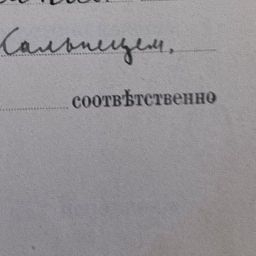 Кальницем,
соотвѣтственно